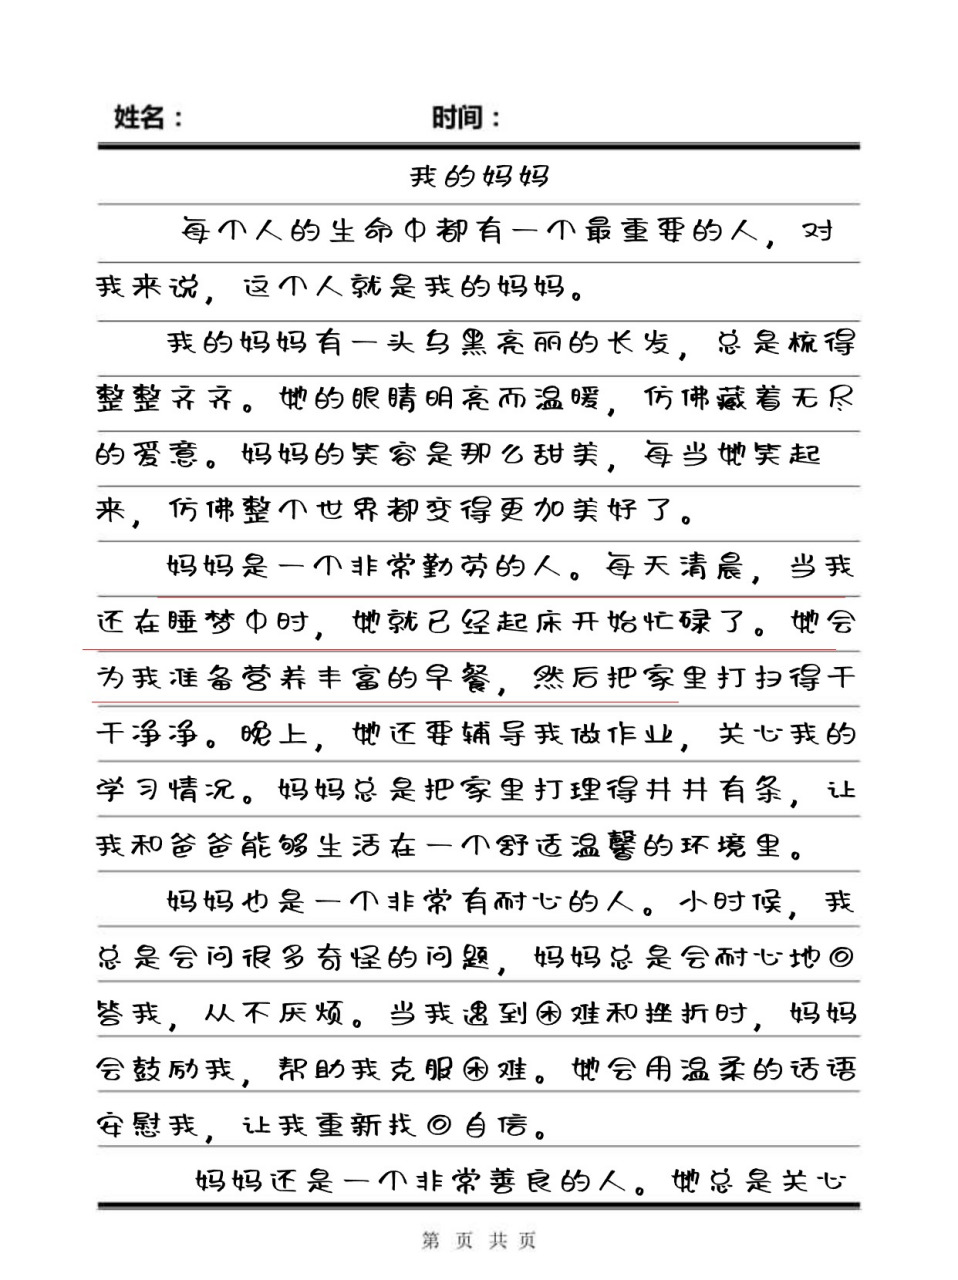 姓名： 时间：
我的妈妈
每个人的生命中都有一个最重要的人，对
我来说，这个人就是我的妈妈。
我的妈妈有一头乌黑亮丽的长发，总是梳得
整整齐齐。她的眼睛明亮而温暖，仿佛藏着无尽
的爱意。妈妈的笑容是那么甜美，每当她笑起
来，仿佛整个世界都变得更加美好了。
妈妈是一个非常勤劳的人。每天清晨，当我
还在睡梦中时，她就已经起床开始忙碌了。她会
为我准备营养丰富的早餐，然后把家里打扫得干
干净净。晚上，她还要辅导我做作业，关心我的
学习情况。妈妈总是把家里打理得井井有条，让
我和爸爸能够生活在一个舒适温馨的环境里。
妈妈也是一个非常有耐心的人。小时候，我
总是会问很多奇怪的问题，妈妈总是会耐心地回
答我，从不厌烦。当我遇到困难和挫折时，妈妈
会鼓励我，帮助我克服困难。她会用温柔的话语
安慰我，让我重新找回自信。
妈妈还是一个非常善良的人。她总是关心
第 页 共 页